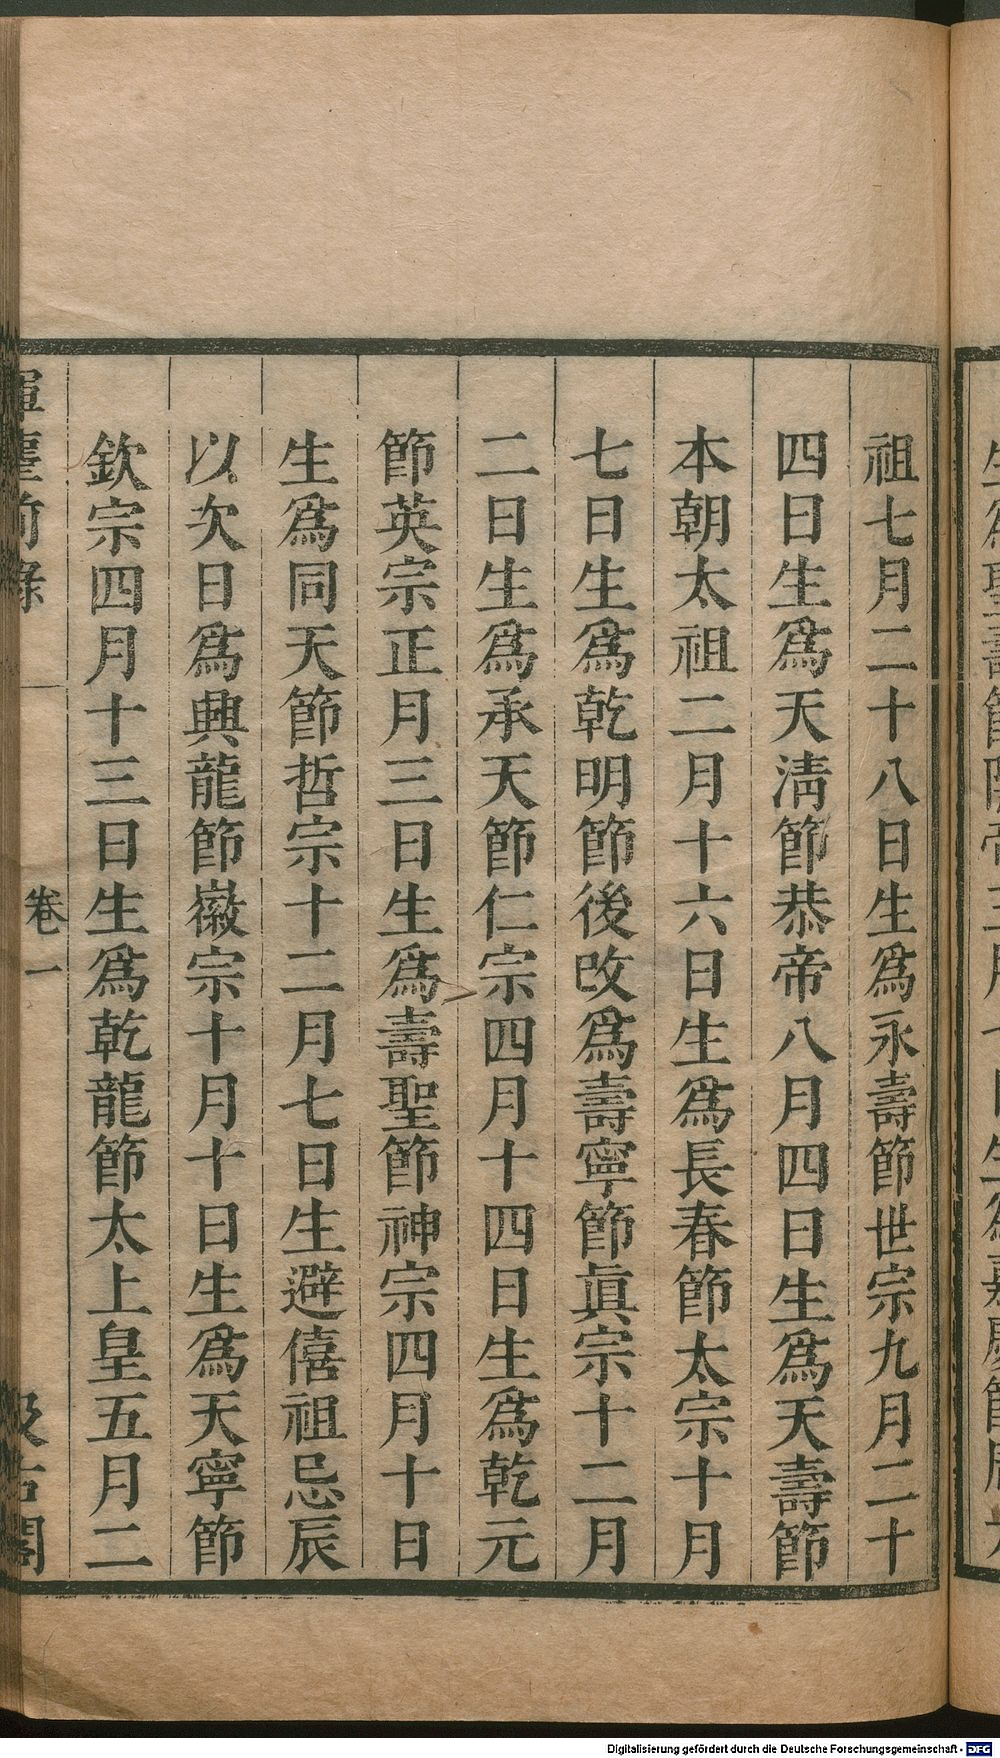 祖七月二十八日生爲永壽節世宗九月二十
四日生爲天淸節恭帝八月四日生爲天壽節
本朝太祖二月十六日生爲長春節太宗十月
七日生爲乾明節後改爲壽寧節眞宗十二月
二日生爲承天節仁宗四月十四日生爲乾元
節英宗正月三日生爲壽聖節神宗四月十日
生爲同天節哲宗十二月七日生避僖祖忌辰
以次日爲興龍節徽宗十月十日生爲天寧節
欽宗四月十三日生爲乾龍節太上皇五月二
揮麈前錄
卷一
汲古閣
Digitalisierung gefördert durch die Deutsche Forschungsgemeinschaft - DFG